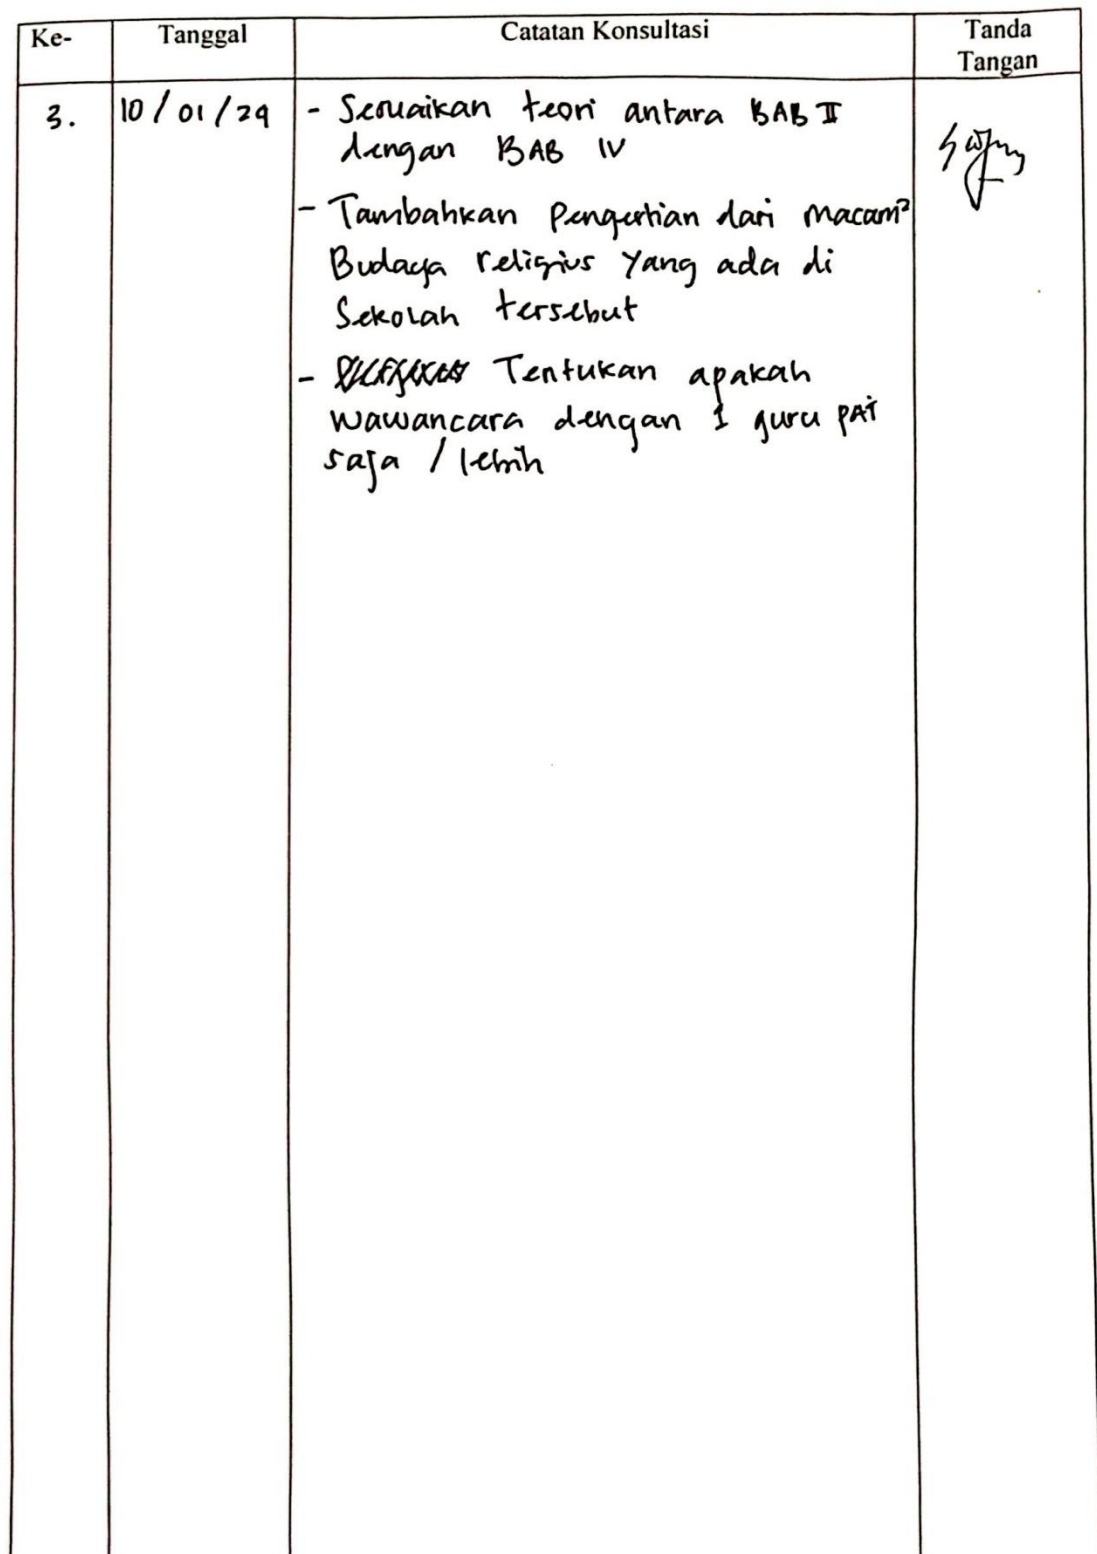 Ke- Tanggal Catatan Konsultasi Tanda
Tangan
3. 10/01/24 - Sesuaikan teori antara BAB II
dengan BAB IV
- Tambahkan Pengertian dari macam²
Budaya religius yang ada di
Sekolah tersebut
- Tentukan apakah
wawancara dengan 1 guru PAI
saja / lebih